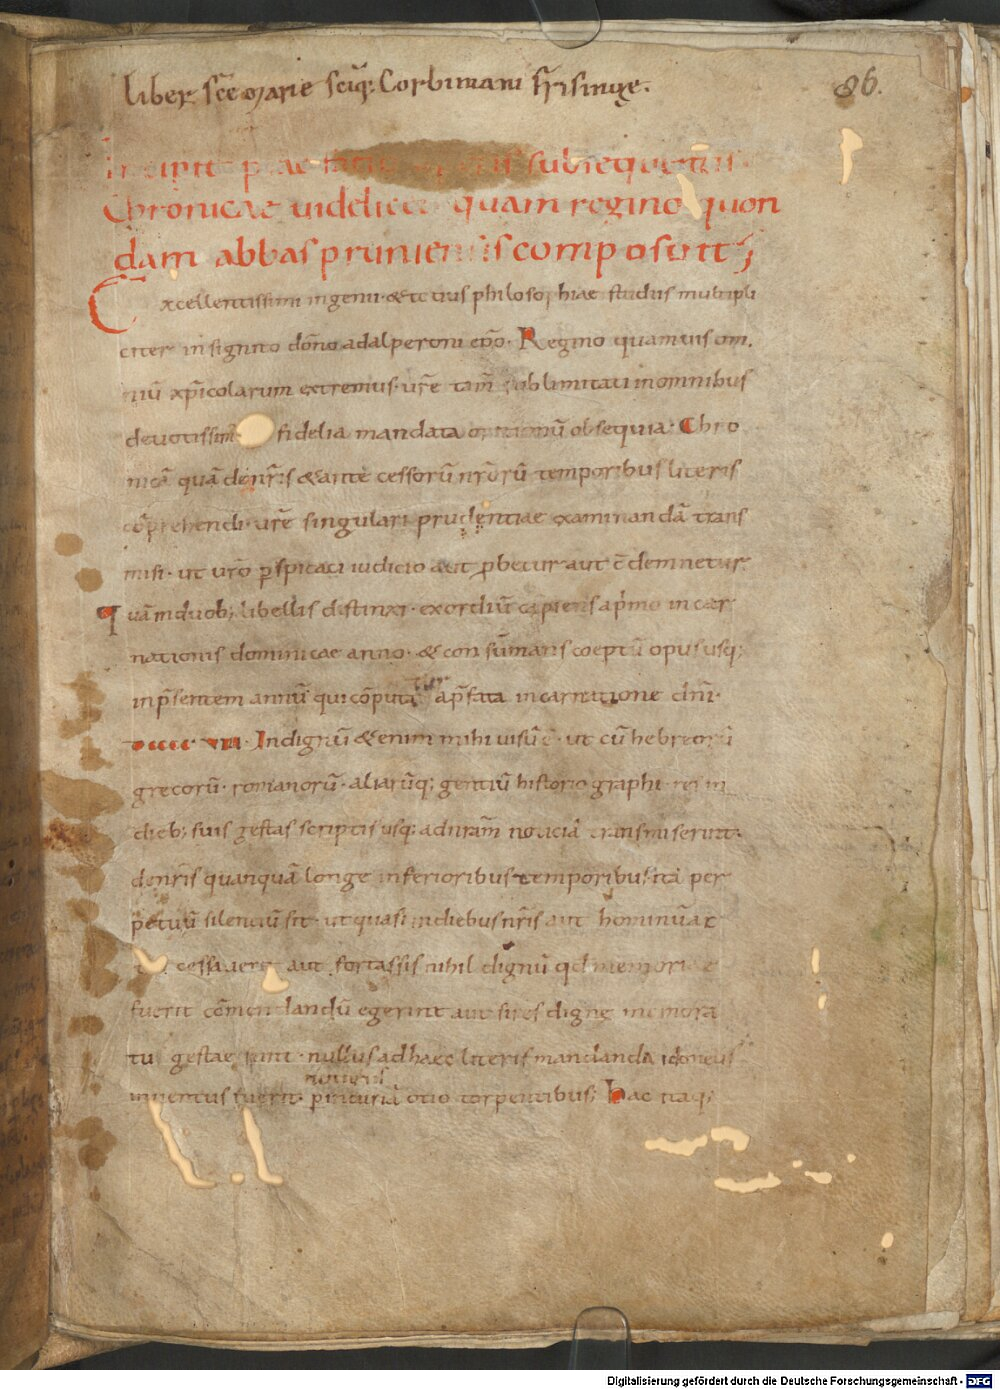 liber sc̄e marie sc̄iq; Corbiniani frisingę.
86.
Incipit prae subsequentis
Chronicae uidelicet quam regino quon
dam abbas pruniensis composuit;
Excellentissimi ingenii· & totius philosophiae studiis multipli
citer insignito dōno adalperoni ep̄o· Regino quamuis om,
niū xp̄icolarum extremus· ur̄e tam̄ sublimitati in omnibus
deuotissim fidelia mandata obsequia· Chro
nicā quā de nr̄is & ante cessorū nr̄orū temporibus literis
cōprehendi· ur̄e singulari prudentiae examinandā trans
misi· ut ur̄o p̱spicaci iudicio aut p̱betur aut c̄demnetur·
Quam duob; libellis distinxi· exordiū capiens a p̄mo incar
nationis dominicae anno· & consūmans coeptū opus usq;
in p̄sentem annū qui cōputatur a p̄fata incarnatione dn̄i·
dcccc viii· Indignū &enim mihi uisū ē· ut cū hebreorū
grecorū· romanorū· aliarūq; gentiū historiographi· res in
dieb; suis gestas scriptis usq; ad nr̄am noticiā transmiserint·
de nr̄is quanquā longe inferioribus temporibus ita per
petuū silenciū sit· ut quasi in diebus nr̄is aut hominū ac
cessauerit aut fortassis nihil dignū qd memoriae
fuerit cōmendandū egerint aut si res digne memora
tu gestae sunt· nullus ad haec literis mandanda idoneus
inuentus fuerit· p̱ incuriā otio torpentibus; Hac itaq;
Digitalisierung gefördert durch die Deutsche Forschungsgemeinschaft - DFG